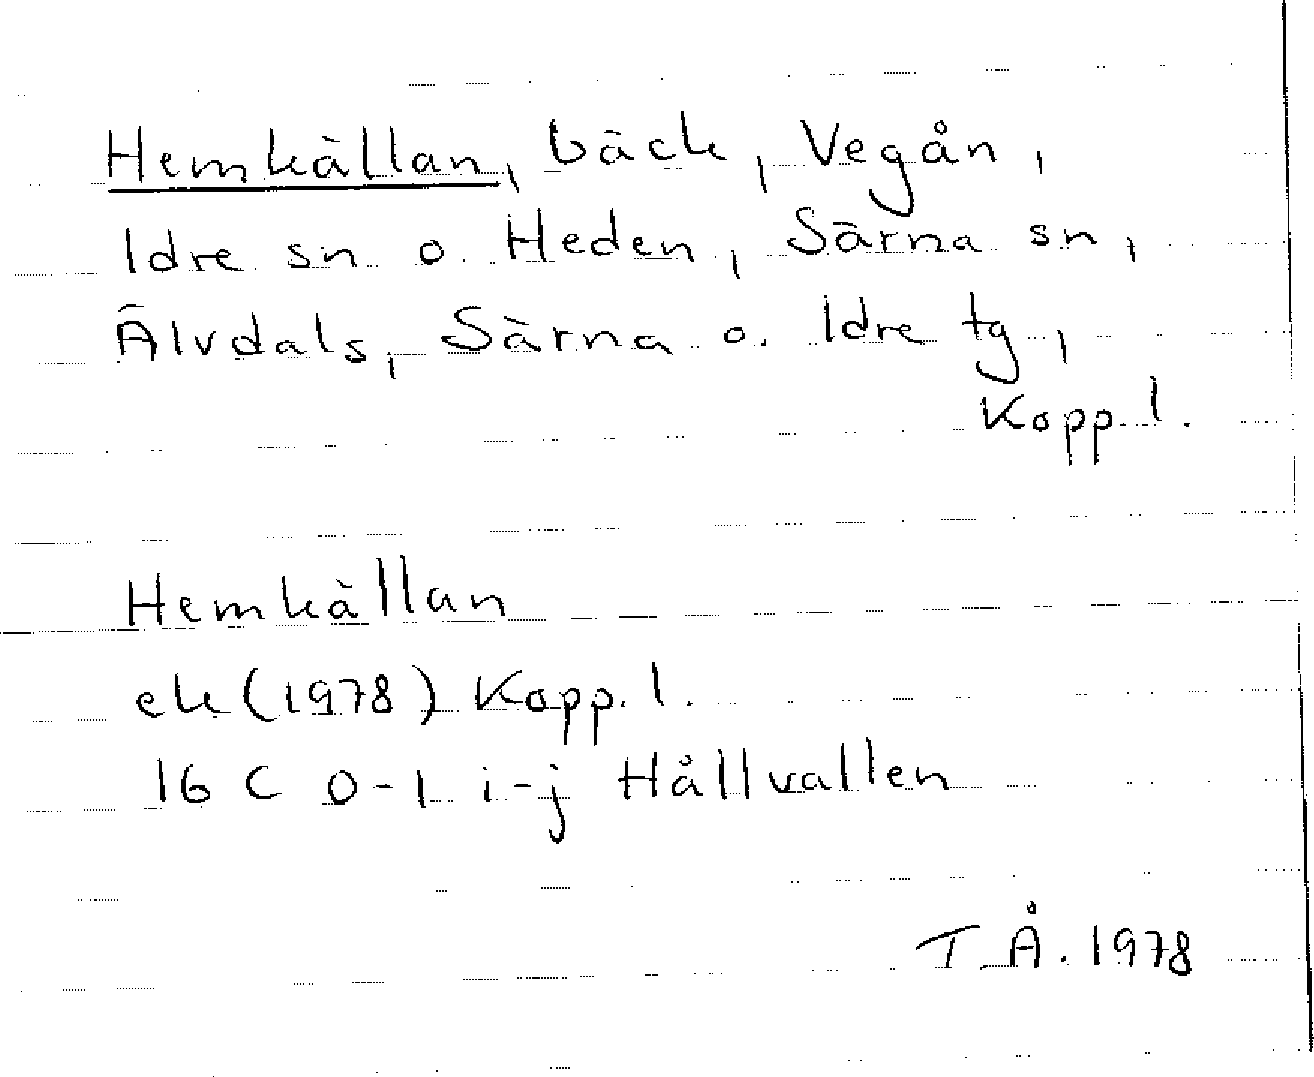 Hemkällan, bäck, Vegån,
Idre sn o. Heden, Särna sn,
Älvdals, Särna o. Idre tg,
Kopp. l.
Hemkällan
ek (1978) Kopp. l.
16 C 0-1 i-j Hållvallen
T.Å. 1978